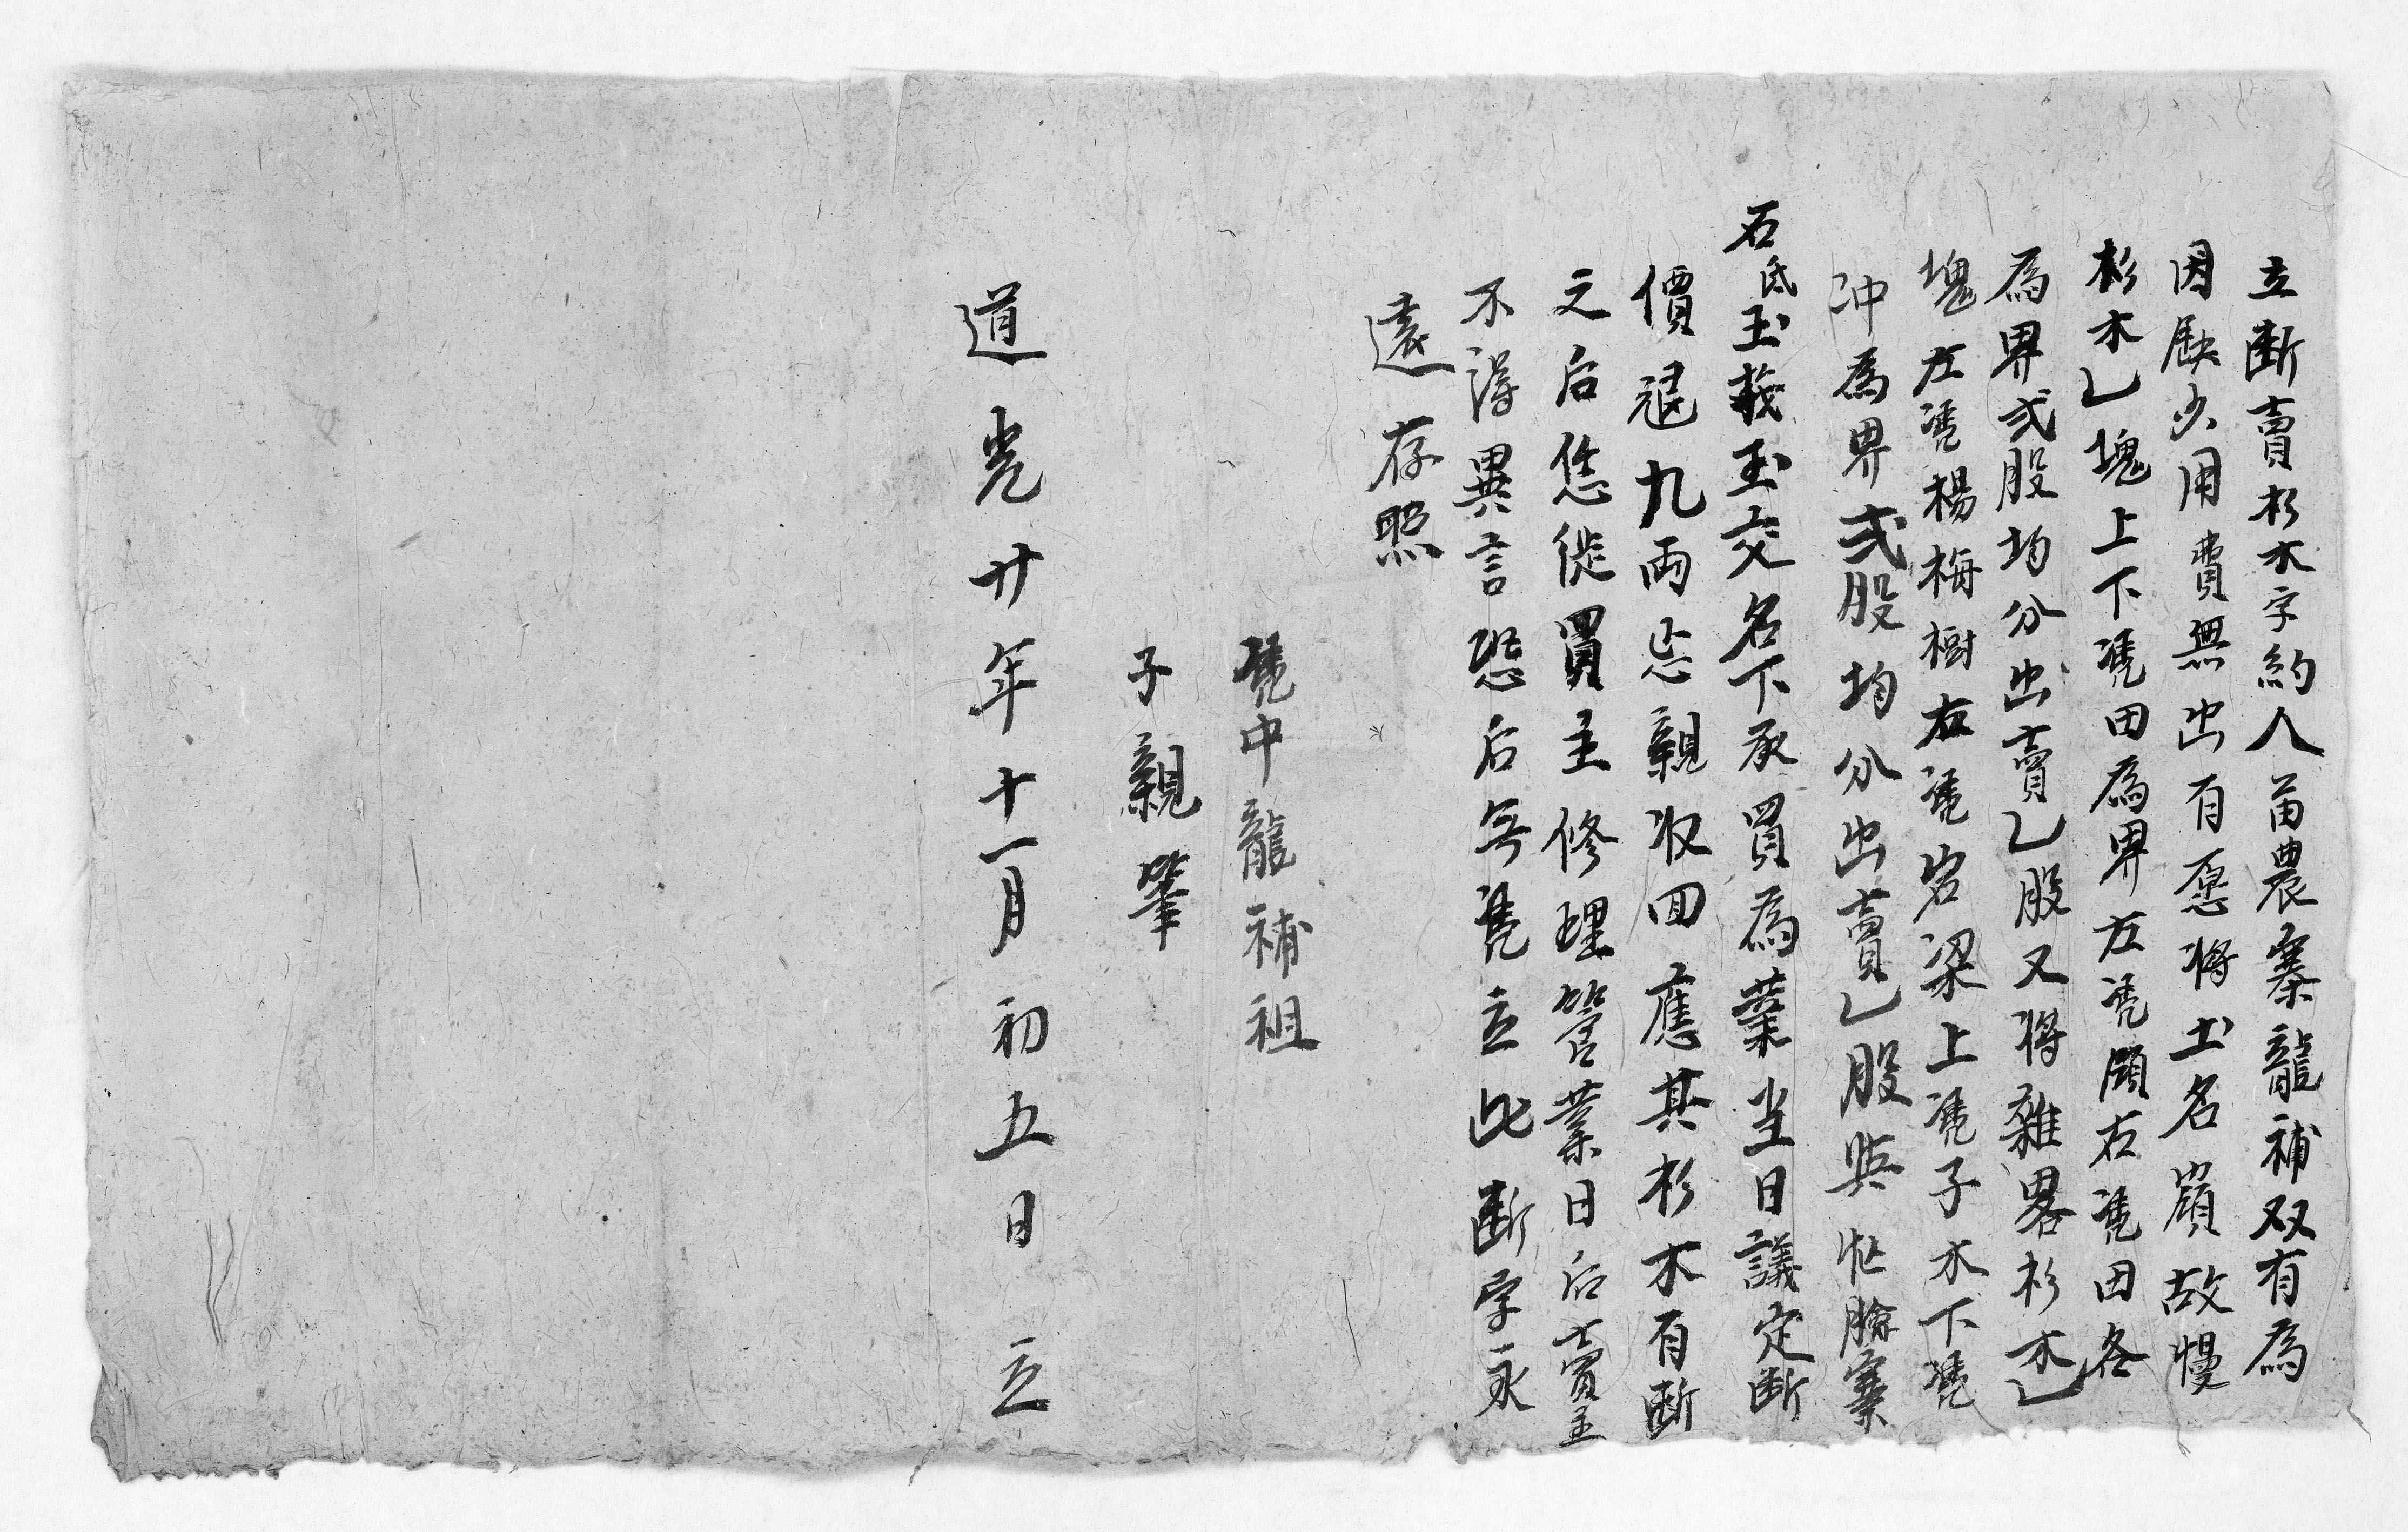 立断賣杉木字約人苗農寨龍補双有為
因缺少用費無出有愿将土名嶺故慢
杉木乚塊上下凴田為界左凴嶺右凴田各
為界弍股均分出賣乚股又将雜畧杉木乚
塊左凴楊梅樹右凴岩梁上凴子木下凴
冲為界弍股均分出賣乚股與寨
石氏玉義玉交名下承買為業当日議定断
價艮九両忘親收回應其杉木有断
之后恁從買主修理管業日后賣主
不淂異言恐后無凴立此断字永
遠存照
凴中龍補祖
子親筆
道光廿年十一月初五日立